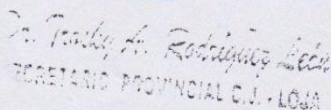 Dr. A. Rodríguez León
SECRETARIO PROVINCIAL C.J. - LOJA